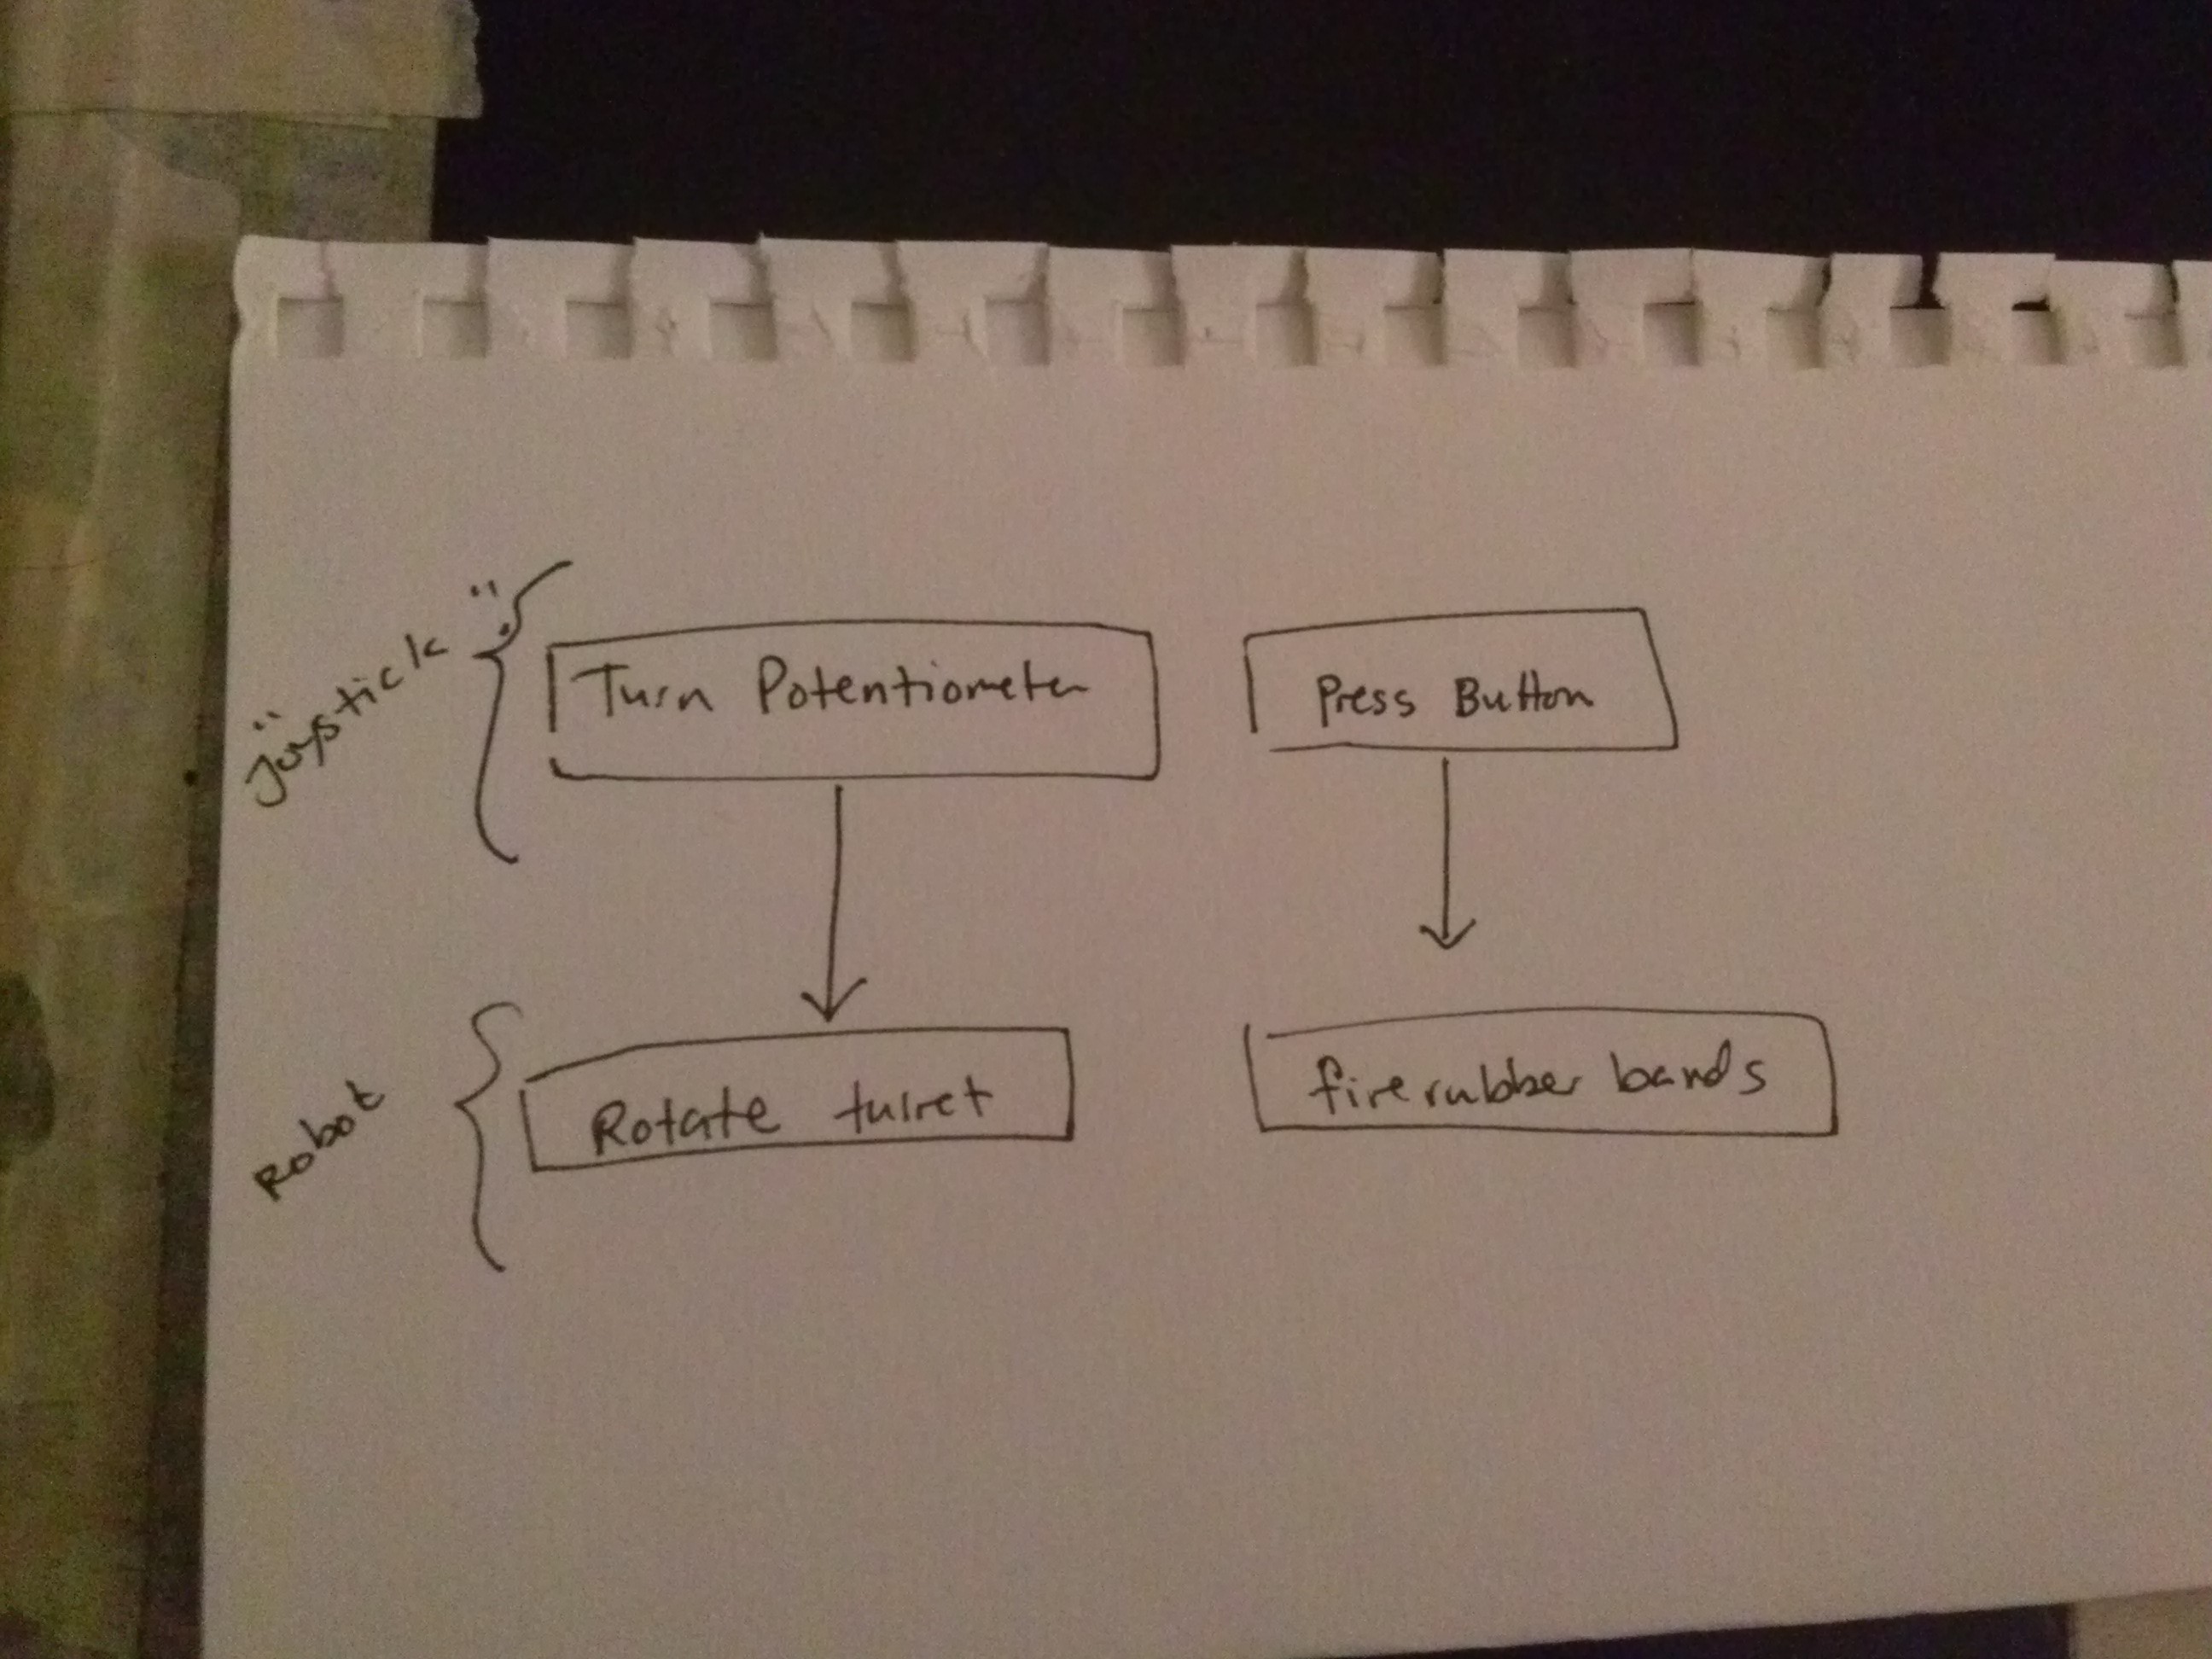 "joystick"
Turn Potentiometer
Press Button
Robot
Rotate turret
fire rubber bands